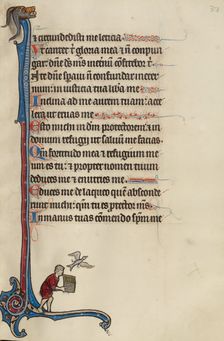 et circumdedisti me leticia.
Ut cantet tibi gloria mea et non compun
gar: dne ds ms inetnum confitebor tibi.
In te dne speravi non confundar inetnum:
in iusticia tua libera me.
Inclina ad me aurem tuam: acce
lera ut eruas me
Esto michi in dm protectorem: et in
domum refugii ut salvum me facias
Qm fortitudo mea et refugium meum
es tu: et propter nomen tuum
deduces me et enutries me
Educes me de laqueo quem absconde
runt michi: qm tu es protector ms.
In manus tuas comendo spm meum